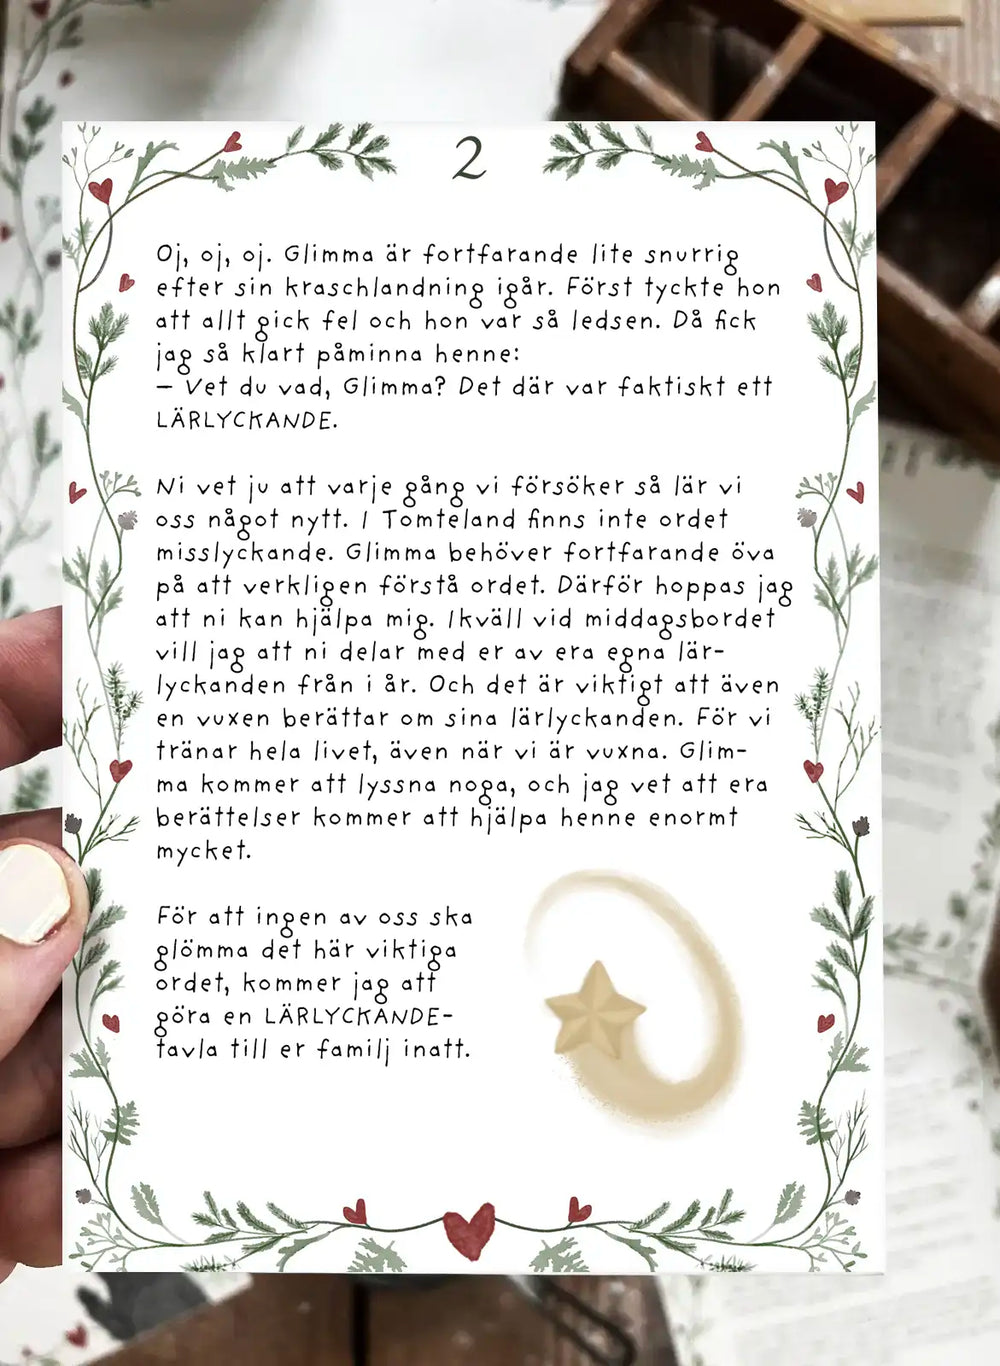 2
Oj, oj, oj. Glimma är fortfarande lite snurrig
efter sin kraschlandning igår. Först tyckte hon
att allt gick fel och hon var så ledsen. Då fick
jag så klart påminna henne:
– Vet du vad, Glimma? Det där var faktiskt ett
LÄRLYCKANDE.
Ni vet ju att varje gång vi försöker så lär vi
oss något nytt. I Tomteland finns inte ordet
misslyckande. Glimma behöver fortfarande öva
på att verkligen förstå ordet. Därför hoppas jag
att ni kan hjälpa mig. Ikväll vid middagsbordet
vill jag att ni delar med er av era egna lär-
lyckanden från i år. Och det är viktigt att även
en vuxen berättar om sina lärlyckanden. För vi
tränar hela livet, även när vi är vuxna. Glim-
ma kommer att lyssna noga, och jag vet att era
berättelser kommer att hjälpa henne enormt
mycket.
För att ingen av oss ska
glömma det här viktiga
ordet, kommer jag att
göra en LÄRLYCKANDE-
tavla till er familj inatt.